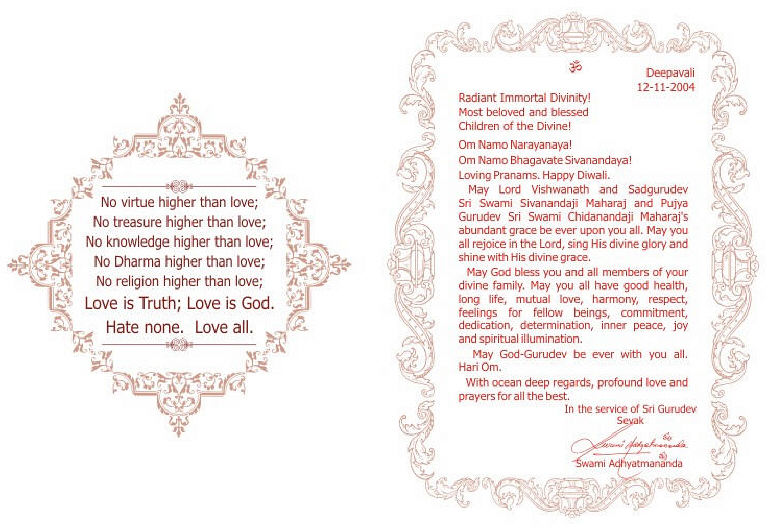 No virtue higher than love;
No treasure higher than love;
No knowledge higher than love;
No Dharma higher than love;
No religion higher than love;
Love is Truth; Love is God.
Hate none. Love all.
ॐ
Deepavali
12-11-2004
Radiant Immortal Divinity!
Most beloved and blessed
Children of the Divine!
Om Namo Narayanaya!
Om Namo Bhagavate Sivanandaya!
Loving Pranams. Happy Diwali.
May Lord Vishwanath and Sadgurudev
Sri Swami Sivanandaji Maharaj and Pujya
Gurudev Sri Swami Chidanandaji Maharaj's
abundant grace be ever upon you all. May you
all rejoice in the Lord, sing His divine glory and
shine with His divine grace.
May God bless you and all members of your
divine family. May you all have good health,
long life, mutual love, harmony, respect,
feelings for fellow beings, commitment,
dedication, determination, inner peace, joy
and spiritual illumination.
May God-Gurudev be ever with you all.
Hari Om.
With ocean deep regards, profound love and
prayers for all the best.
In the service of Sri Gurudev
Sevak
Swami Adhyatmananda
Swami Adhyatmananda